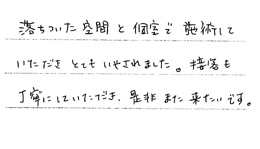 落ちついた空間と個室で施術して
いただきとてもいやされました。接客も
丁寧にしていただき、是非また来たいです。